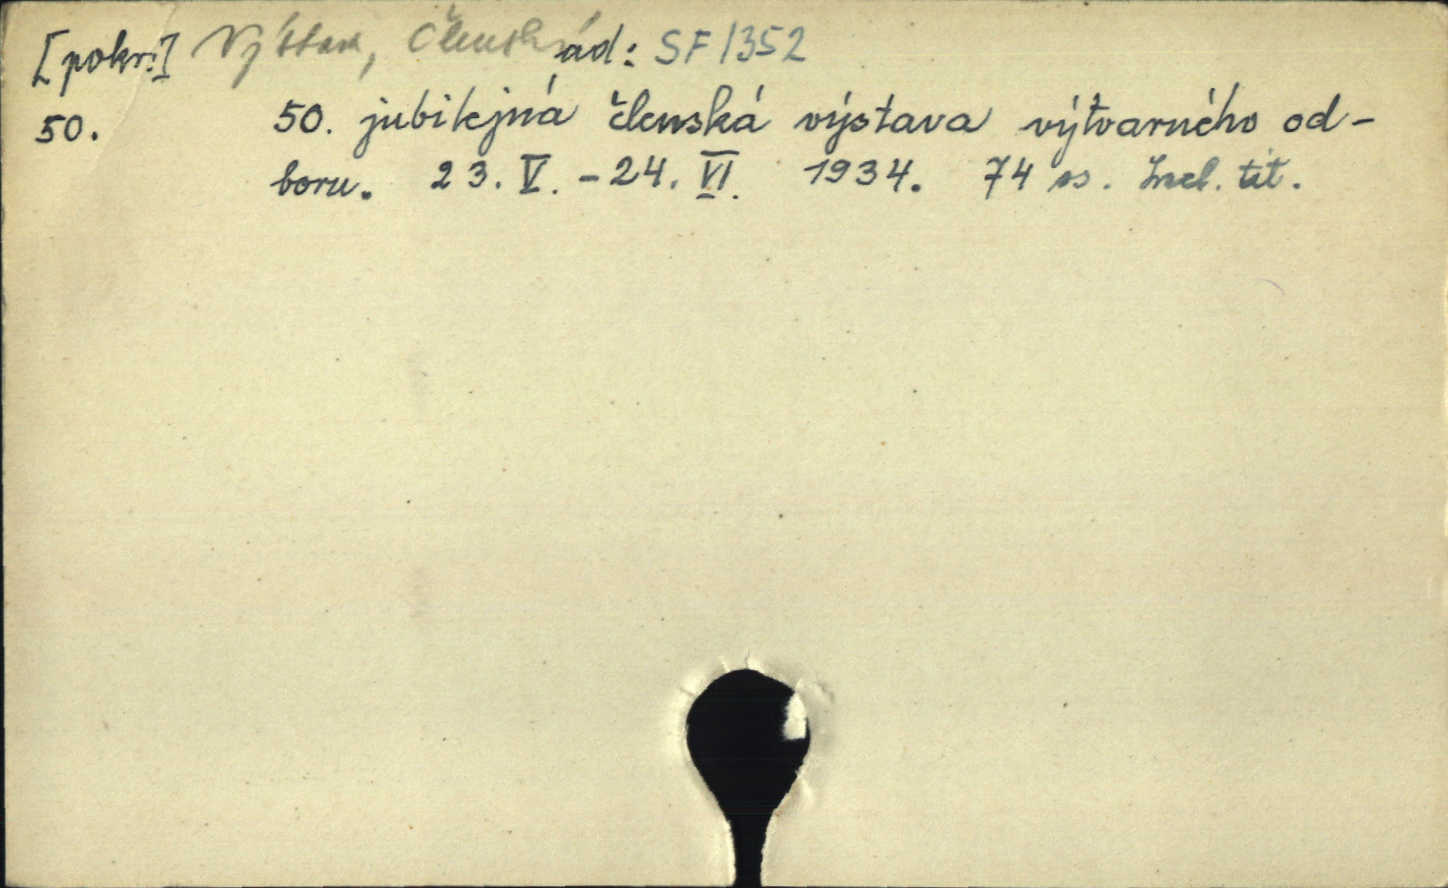 [pokr.] Výstava, Členská ad: SF 1352
50. 50. jubilejná členská výstava výtvarného od-
boru. 23. V. - 24. VI. 1934. 74 ss. tit.